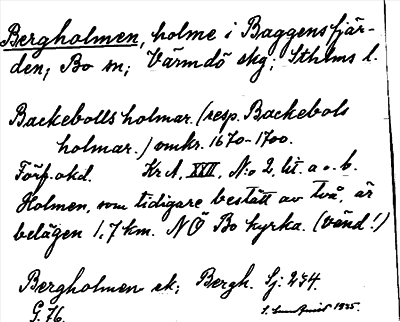 Bergholmen, holme i Baggensfjär-
den, Bo sn; Värmdö skg; Sthlms l.
Backebolls holmar. (resp. Backebols
holmar.) omkr. 1670-1700.
Förf. okd. Kr A. XVII, N:o 2, lit. a o. b.
Holmen, som tidigare bestått av två, är
belägen 1,7 km. NÖ Bo kyrka. (vänd!)
Bergholmen ek; Bergh. Sj. 234.
G. 76. 1925.